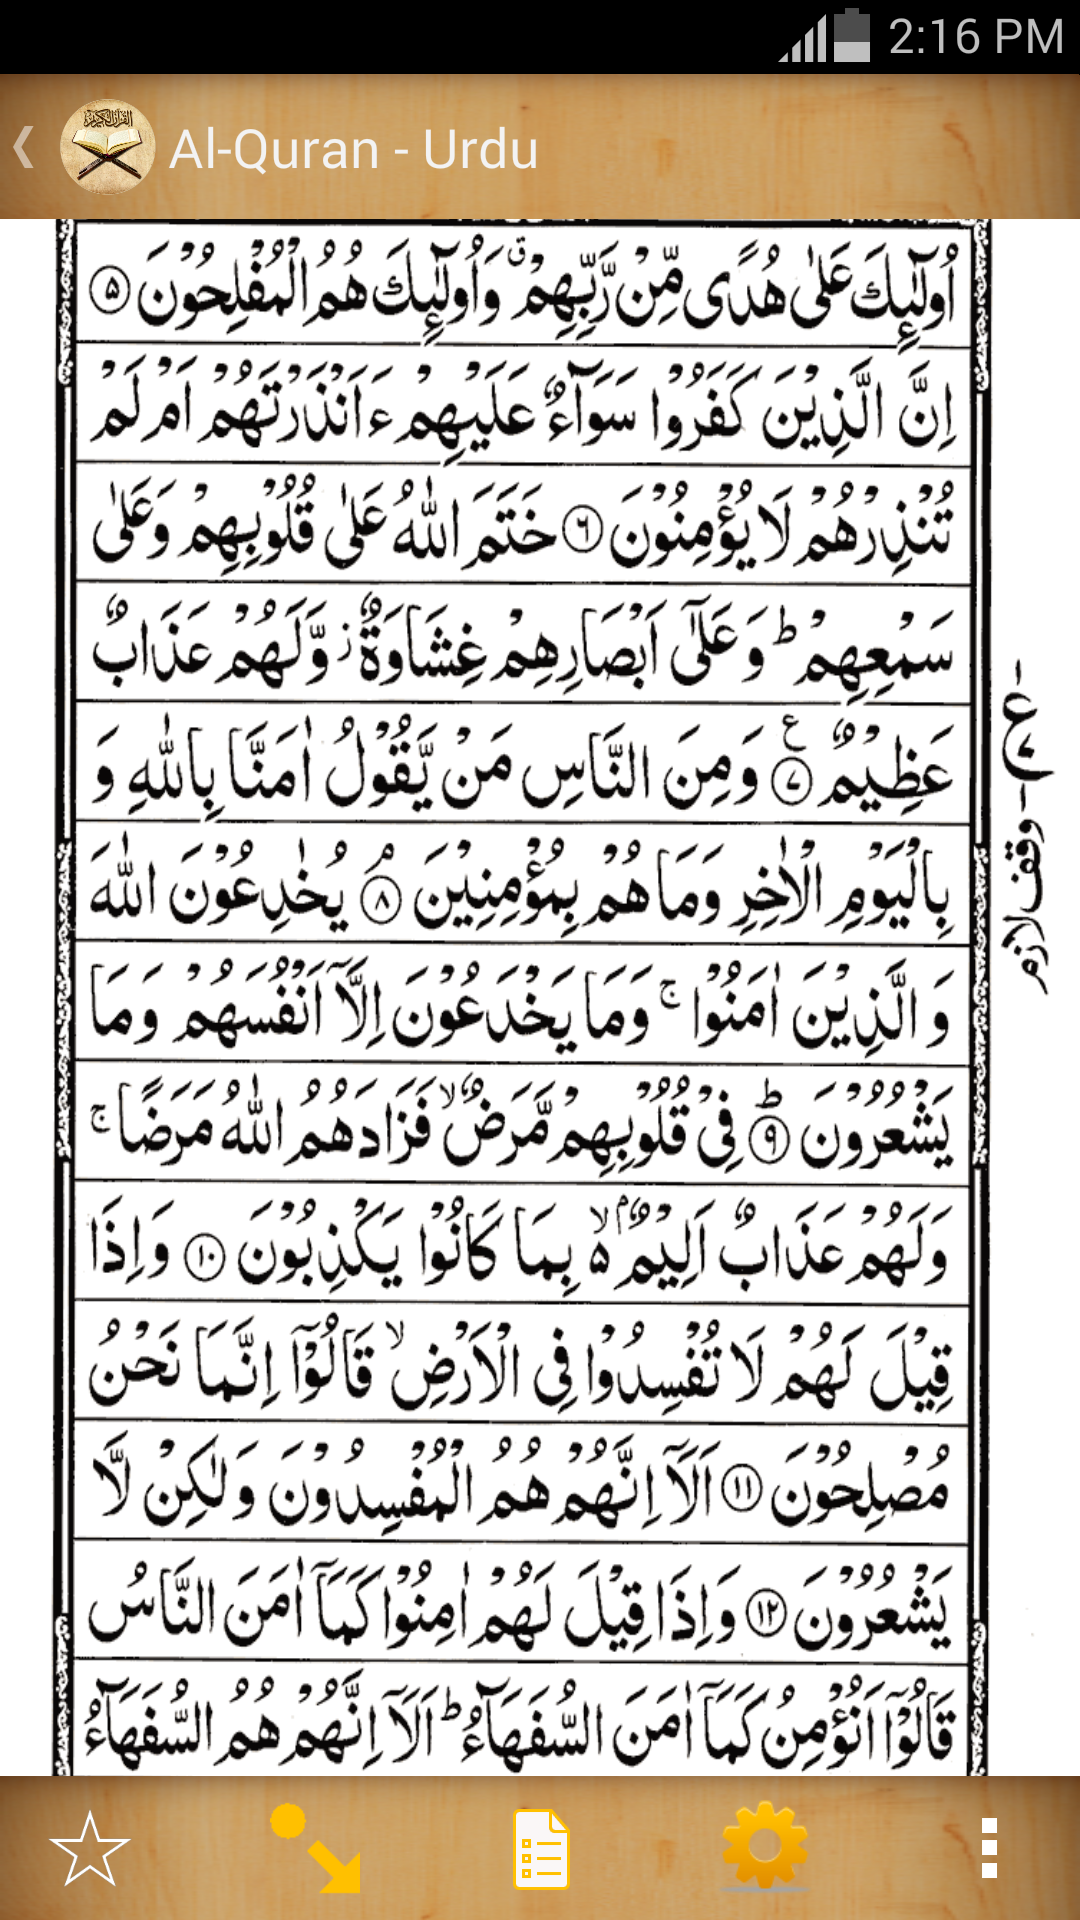 2:16 PM
Al-Quran - Urdu
اُولٰٓئِكَ عَلٰى هُدًى مِّنْ رَّبِّهِمْ ۗ وَاُولٰٓئِكَ هُمُ الْمُفْلِحُوْنَ ۵
اِنَّ الَّذِيْنَ كَفَرُوْا سَوَآءٌ عَلَيْهِمْ ءَاَنْذَرْتَهُمْ اَمْ لَمْ
تُنْذِرْهُمْ لَا يُؤْمِنُوْنَ ۶ خَتَمَ اللّٰهُ عَلٰى قُلُوْبِهِمْ وَعَلٰى
سَمْعِهِمْ ؕ وَعَلٰٓى اَبْصَارِهِمْ غِشَاوَةٌ ز وَّلَهُمْ عَذَابٌ
عَظِيْمٌ ۷ ع وَمِنَ النَّاسِ مَنْ يَّقُوْلُ اٰمَنَّا بِاللّٰهِ وَ
بِالْيَوْمِ الْاٰخِرِ وَمَا هُمْ بِمُؤْمِنِيْنَ ۘ ۸ يُخٰدِعُوْنَ اللّٰهَ
وَ الَّذِيْنَ اٰمَنُوْا ۚ وَمَا يَخْدَعُوْنَ اِلَّآ اَنْفُسَهُمْ وَمَا
يَشْعُرُوْنَ ؕ ۹ فِيْ قُلُوْبِهِمْ مَّرَضٌ ۙ فَزَادَهُمُ اللّٰهُ مَرَضًا ۚ
وَلَهُمْ عَذَابٌ اَلِيْمٌۢ ۙ۵ بِمَا كَانُوْا يَكْذِبُوْنَ ۱۰ وَاِذَا
قِيْلَ لَهُمْ لَا تُفْسِدُوْا فِى الْاَرْضِ ۙ قَالُوْٓا اِنَّمَا نَحْنُ
مُصْلِحُوْنَ ۱۱ اَلَآ اِنَّهُمْ هُمُ الْمُفْسِدُوْنَ وَلٰكِنْ لَّا
يَشْعُرُوْنَ ۱۲ وَاِذَا قِيْلَ لَهُمْ اٰمِنُوْا كَمَآ اٰمَنَ النَّاسُ
قَالُوْٓا اَنُؤْمِنُ كَمَآ اٰمَنَ السُّفَهَآءُ ؕ اَلَآ اِنَّهُمْ هُمُ السُّفَهَآءُ
وقف لازم